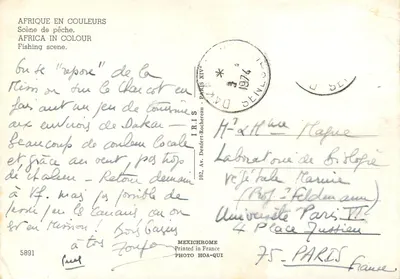 AFRIQUE EN COULEURS
Scène de pêche.
AFRICA IN COLOUR
Fishing scene.
On se "repose" de la
Mission sur le Charcot en
faisant un peu de tourisme
aux environs de Dakar -
Beaucoup de couleur locale
et grâce au vent, pas trop
de chaleur - Retour demain
à V.f. mais pas possible de
vous le on
est en Mission! Bons baisers
à tous
5891
MEXICHROME
Printed in France
PHOTO HOA-QUI
IRIS
102, Av. Denfert-Rochereau - PARIS XIVe
1974
SENEGAL
Mr & Mme Magne
Laboratoire de Biologie
végétale Marine
(Prof. Feldmann)
Université Paris VI
4 Place Jussieu
75 - PARIS
France